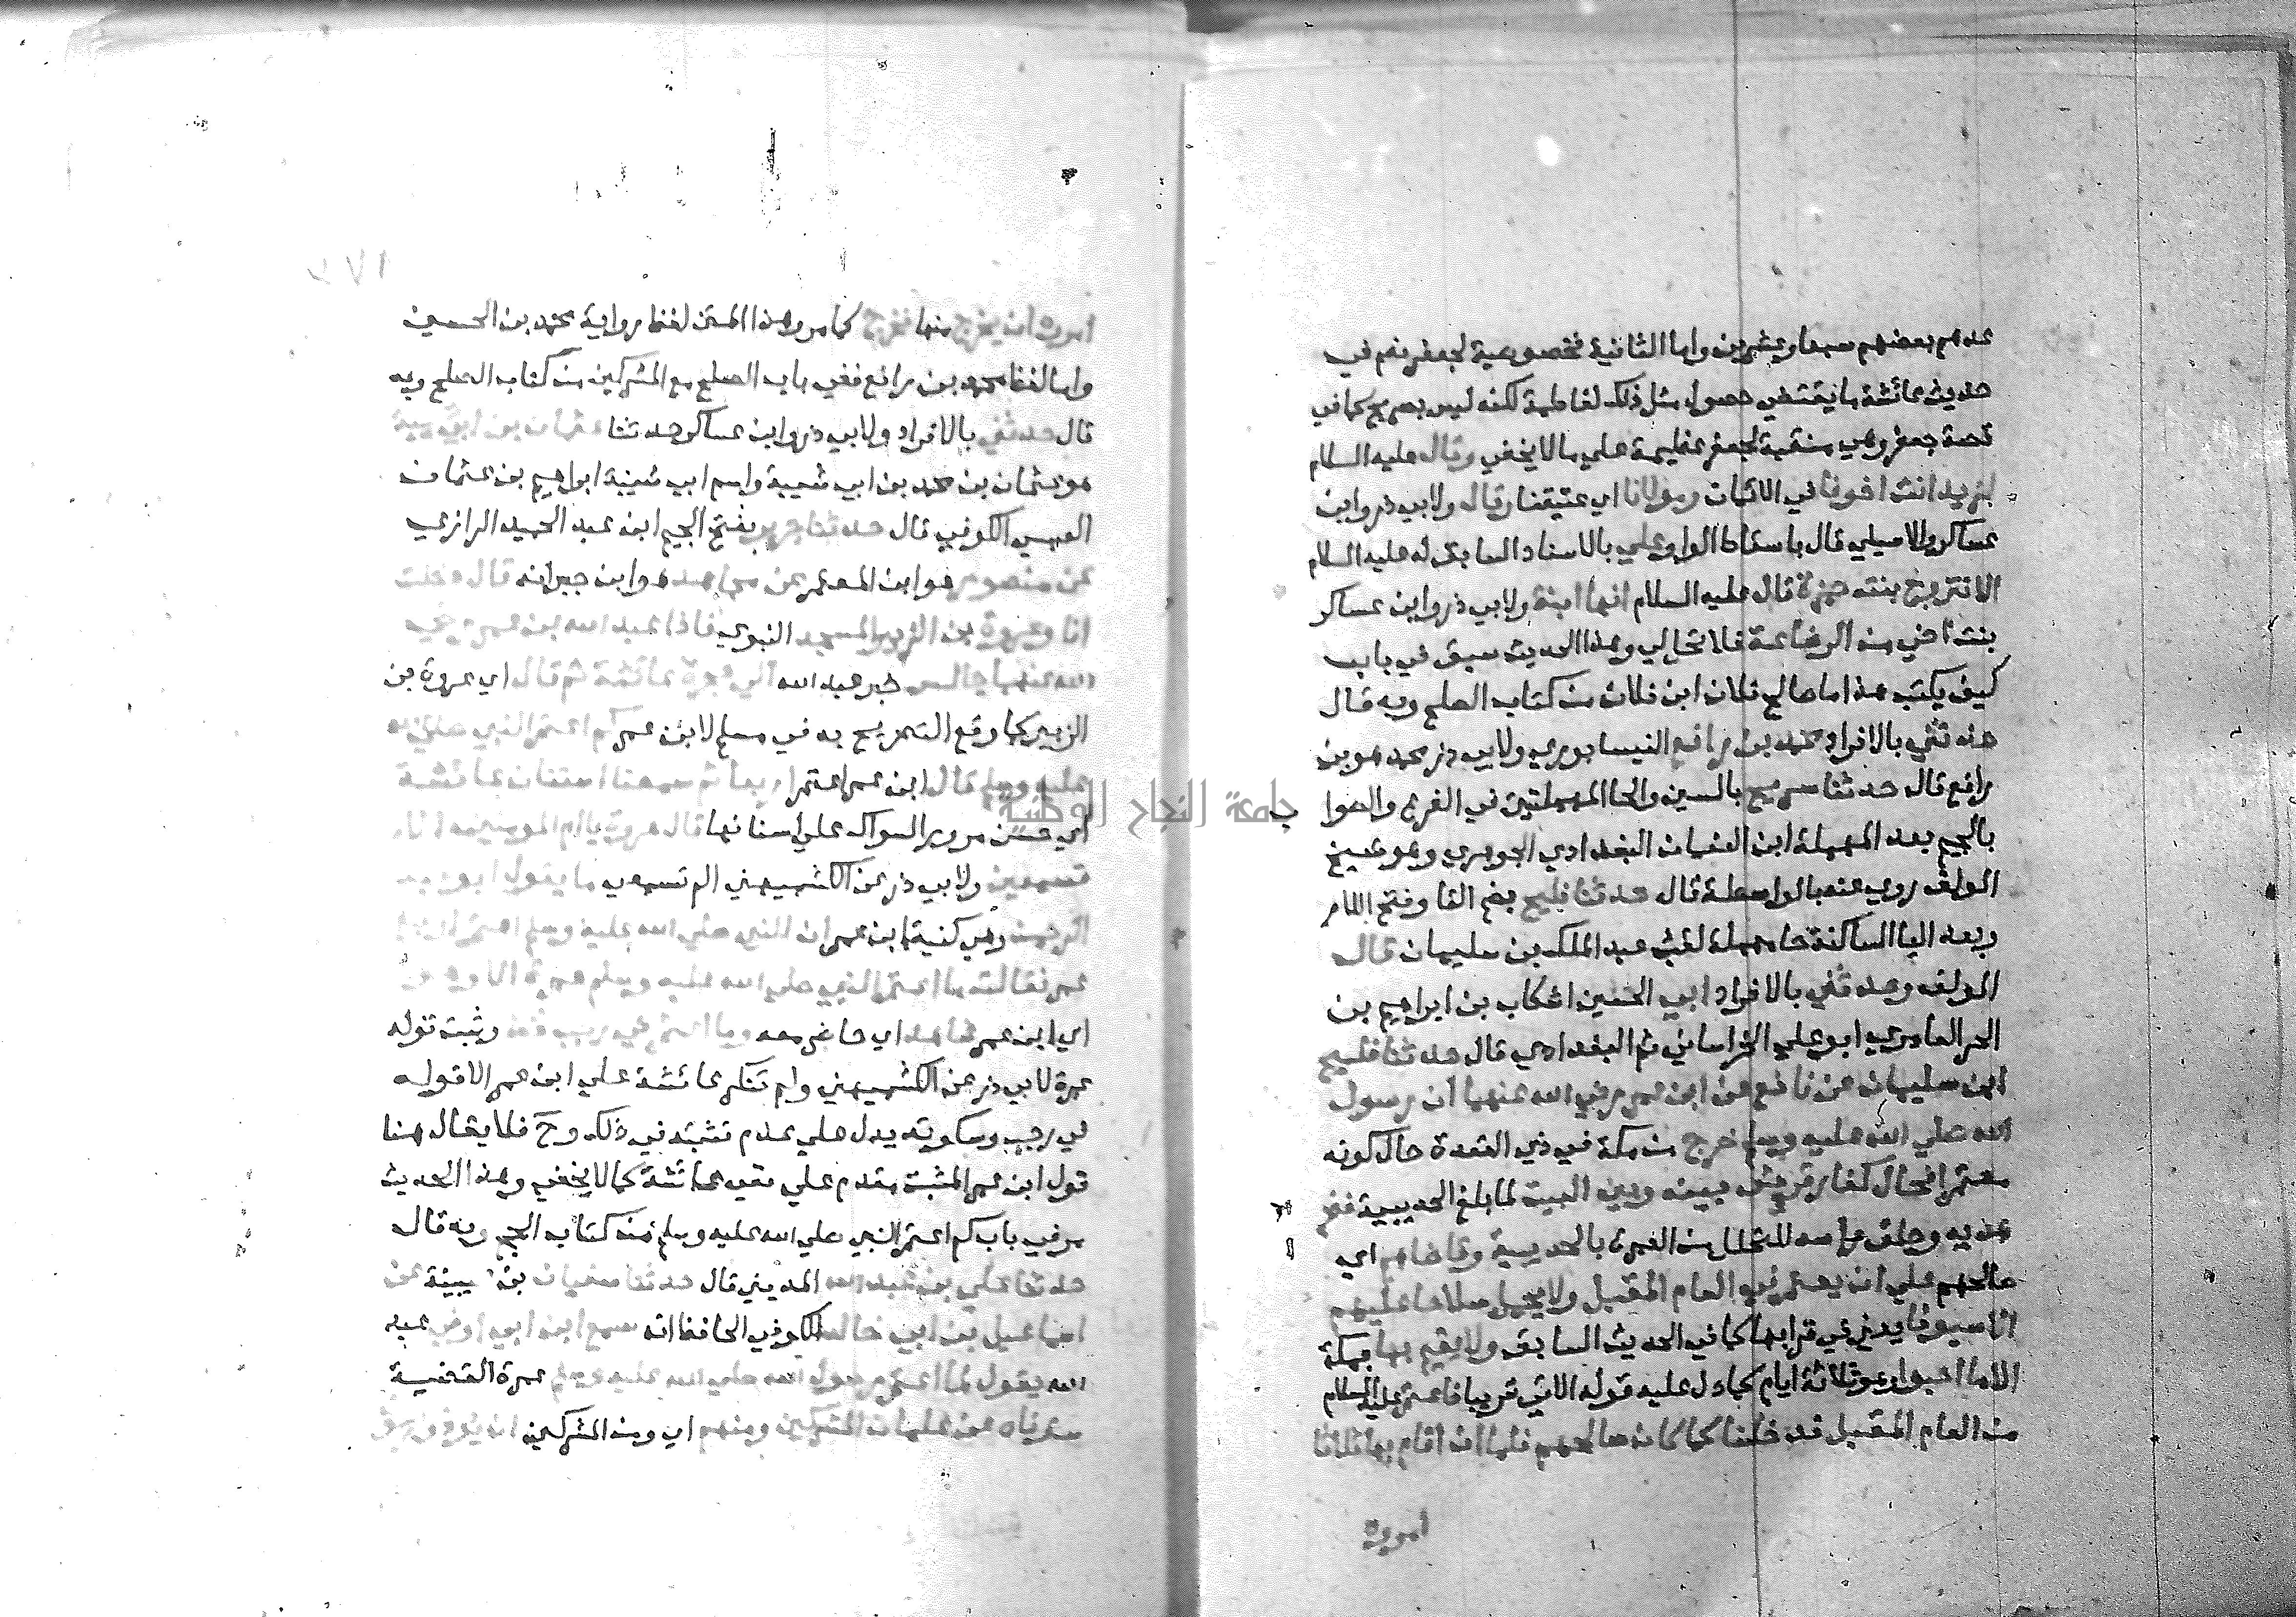 عدهم بعضهم سبعا وعشرين واما الثانية فخصوصية لجعفر نعم في
حديث عائشة ما يقتضي حصول مثل ذلك لفاطمة لكنه ليس بصريح كما في
قصة جعفر وهي منقبة لجعفر عظيمة علي ما لا يخفي وقال عليه السلام
لزيد انت اخونا في الايمان ومولانا اي عتيقنا وقال ولابي ذر وابن
عساكر والاصيلي قال باسقاط الواو علي بالاسناد السابق له عليه السلام
الا تتزوج بنت حمزة قال عليه السلام انها ابنة ولابي ذر وابن عساكر
بنت اخي من الرضاعة فلا تحل لي وهذا الحديث سبق في باب
كيف يكتب هذا ما صالح فلان ابن فلان من كتاب الصلح وبه قال
حدثني بالافراد محمد بن رافع النيسابوري ولابي ذر محمد هو بن
رافع قال حدثنا سريج بالسين والحا المهملتين في الفرع والصوا ب
بالجيم بعد المهملة ابن النعمان البغدادي الجوهري وهو شيخ
المولف روي عنه بالواسطة قال حدثنا فليح بضم الفا وفتح اللام
وبعد اليا الساكنة حا مهملة لقب عبد الملك بن سليمان قال
المولف وحدثني بالافراد ابي الحسين اشكاب بن ابراهيم بن
الحر العامري ابو علي الخراساني ثم البغدادي قال حدثنا فليح
ابن سليمان عن نافع عن ابن عمر رضي الله عنهما ان رسول
الله صلي الله عليه وسلم خرج من مكة في ذي القعدة حال كونه
معتمرا فحال كفار قريش بينه وبين البيت لما بلغ الحديبية فنحر
هديه وحلق راسه للتحلل من العمرة بالحديبية وقاضاهم اي
صالحهم علي ان يعتمر العام المقبل ولا يحمل سلاحا عليهم
الا سيوفا يعني في قرابها كما في الحديث السابق ولا يقيم بها بمكة
الا ما احبوا وهو ثلاثة ايام كما دل عليه قوله الاتي قريبا فاعتمر عليه السلام
من العام المقبل فدخلها كما كان صالحهم فلما ان اقام بها ثلاثا
امروه
امروه ان يخرج منها فخرج كما مر وهذا المتن لفظ رواية محمد بن الحسين
واما لفظ محمد بن رافع ففي باب الصلح مع المشركين من كتاب الصلح وبه
قال حدثني بالافراد ولابي ذر وابن عساكر حدثنا عثمان بن ابي شيبة
هو عثمان بن محمد بن ابي شيبة واسم ابي شيبة ابراهيم بن عثمان
العبسي الكوفي قال حدثنا جرير بفتح الجيم ابن عبد الحميد الرازي
عن منصور هو ابن المعتمر عن مجاهد هو ابن جبر انه قال دخلت
انا وعروة بن الزبير المسجد النبوي فاذا عبد الله بن عمر رضي
الله عنهما جالس خبر عبد الله الي حجرة عائشة ثم قال اي عروة بن
الزبير كما وقع التصريح به في مسلم لابن عمر كم اعتمر النبي صلي الله
عليه وسلم قال ابن عمر اعتمر اربعا ثم سمعنا استنان عائشة
اي حسن مرور السواك علي اسنانها قال عروة يا ام المومنين الا
تسمعين ولابي ذر عن الكشميهني الم تسمعي ما يقول ابو عبد
الرحمن وهي كنية ابن عمر ان النبي صلي الله عليه وسلم اعتمر اربع
عمر فقالت ما اعتمر النبي صلي الله عليه وسلم عمرة الا وهو
اي ابن عمر شاهد اي حاضر معه وما اعتمر في رجب قط وثبت قوله
عمرة لابي ذر عن الكشميهني ولم تنكر عائشة علي ابن عمر الا قوله
في رجب وسكوته يدل علي عدم تثبته في ذلك وح فلا يقال هنا
قول ابن عمر المثبت مقدم علي نفي عائشة كما لا يخفي وهذا الحديث
مر في باب كم اعتمر النبي صلي الله عليه وسلم من كتاب الحج وبه قال
حدثنا علي بن عبد الله المديني قال حدثنا سفيان بن عيينة عن
اسماعيل بن ابي خالد الكوفي الحافظ انه سمع ابن ابي اوفي عبد
الله يقول لما اعتمر رسول الله صلي الله عليه وسلم عمرة القضية
سترناه من غلمان المشركين ومنهم اي ومن المشركين ان يوذوا
جامعة النجاح الوطنية